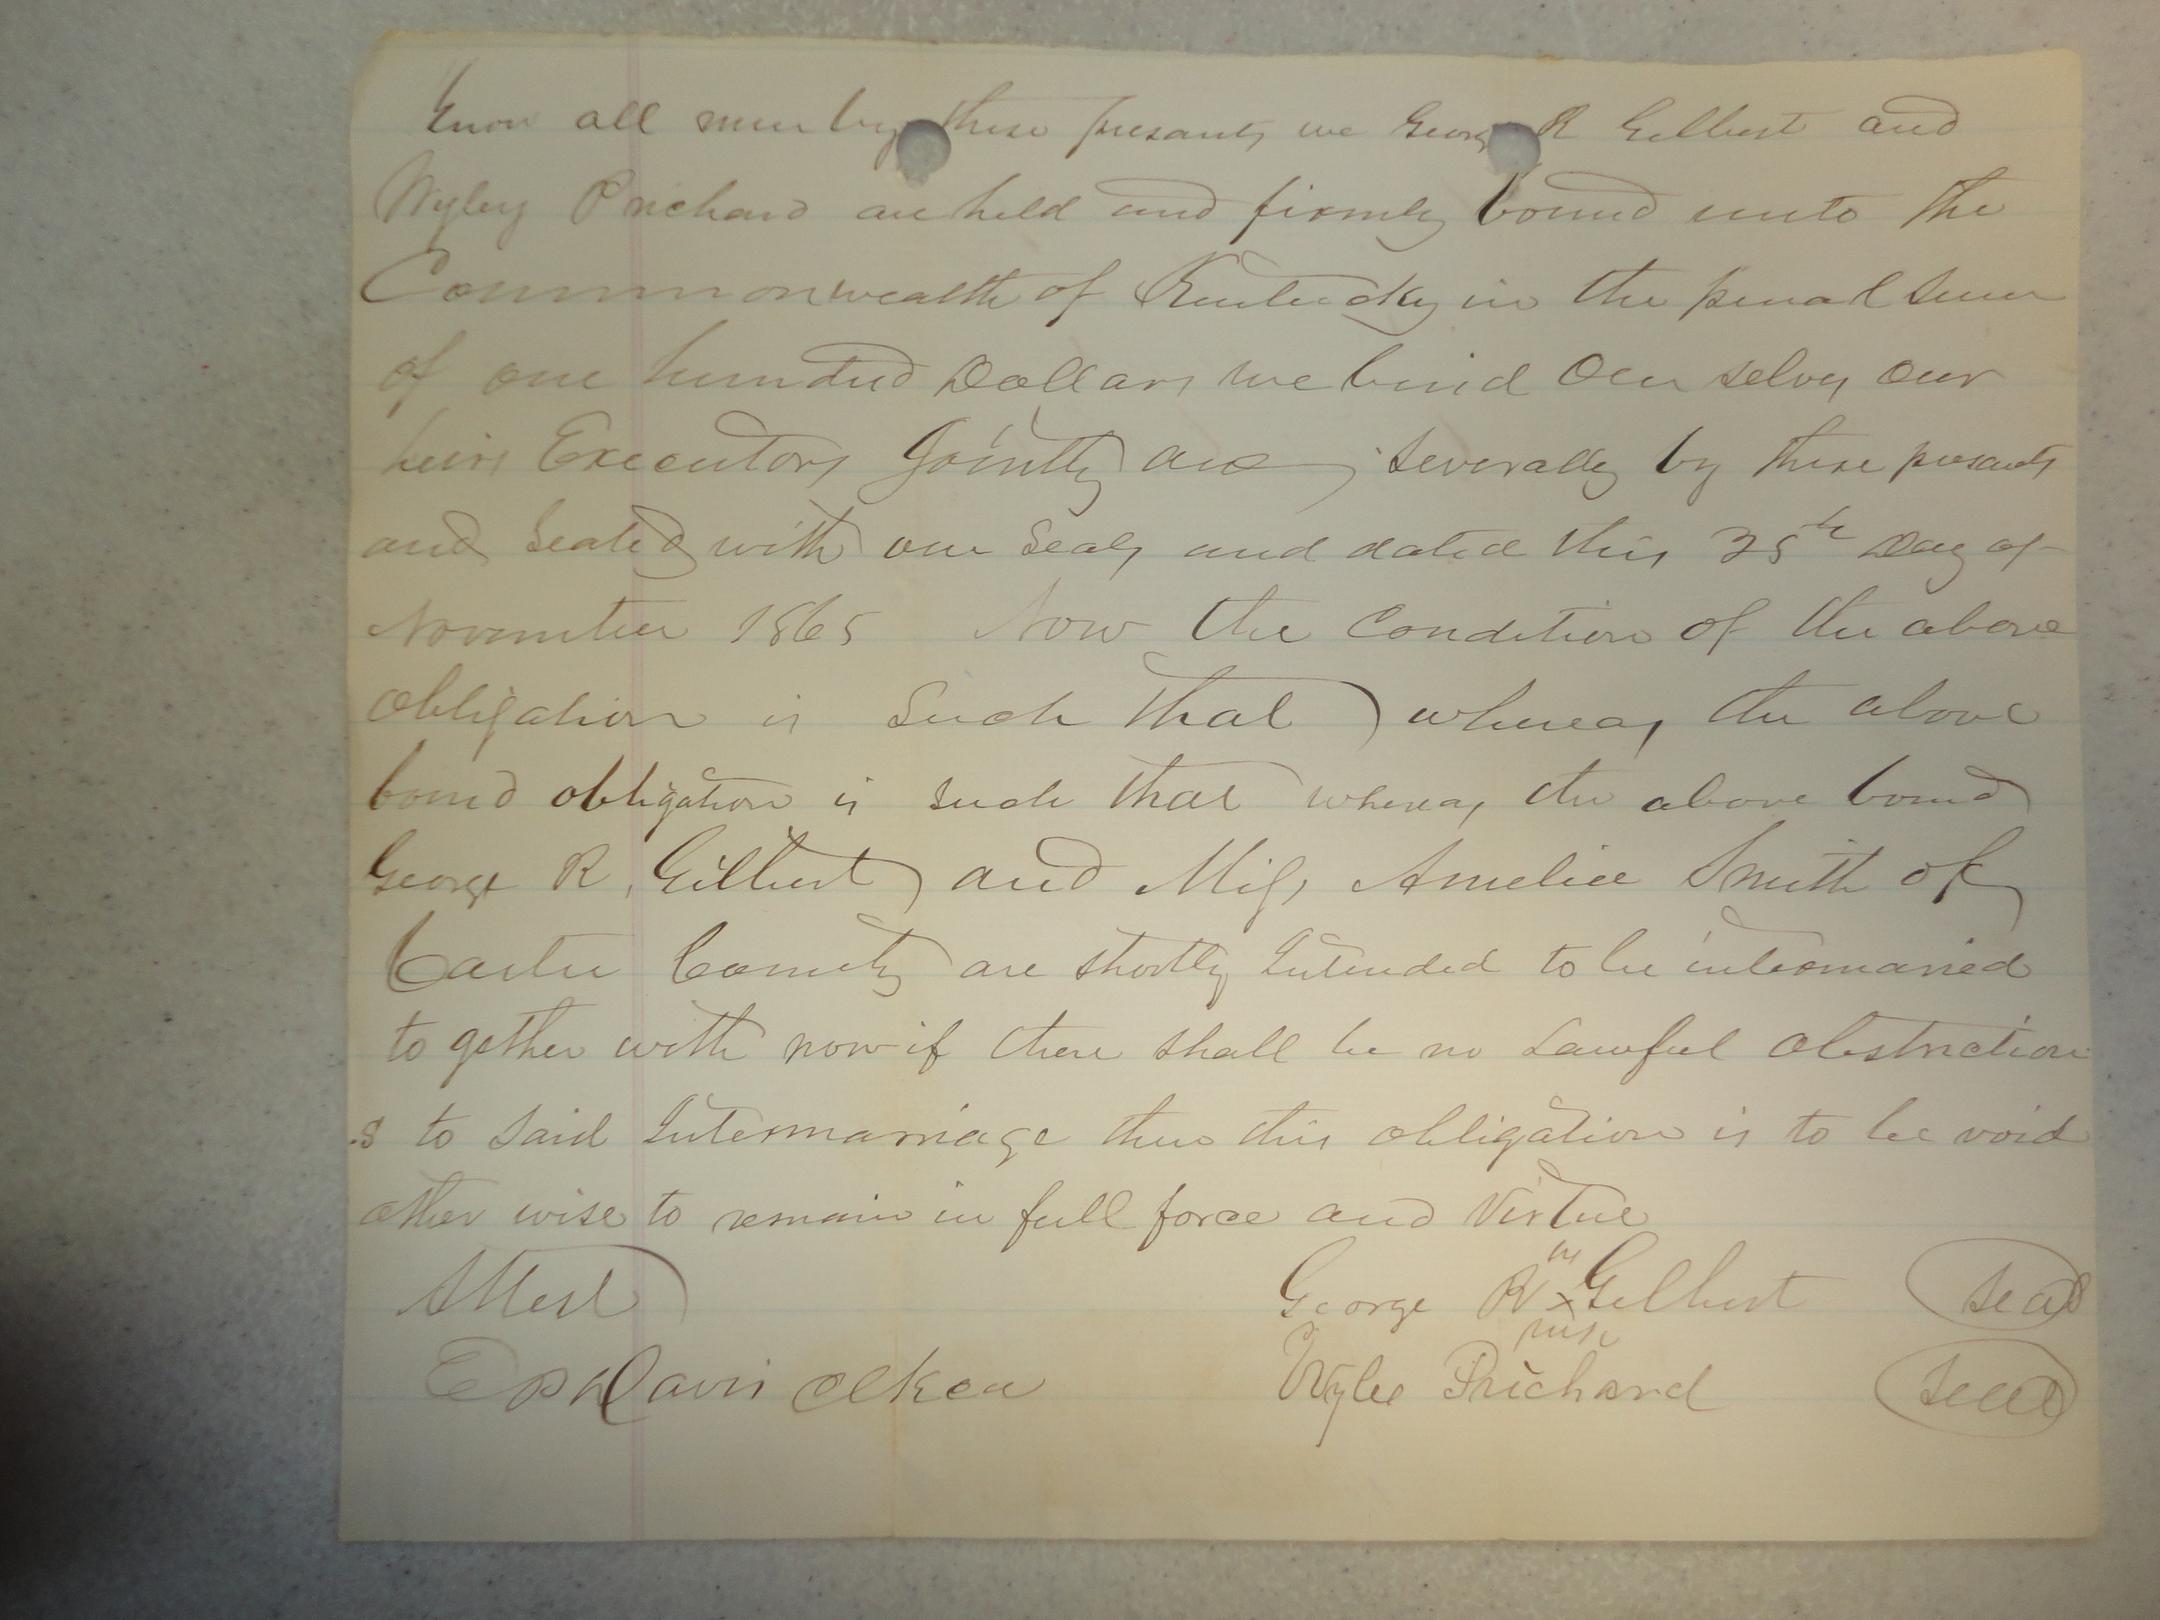 Know all men by these presants we George R Gilbert and
Wyley Prichard are held and firmly bound unto the
Commonwealth of Kentucky in the penal sum
of one hundred Dollars we bind Our selves our
heirs Executors Jointly and severally by these presants
and Sealed with our Seals and dated this 25th Day of
November 1865 Now the Condition of the above
Obligation is Such that whereas the above
bound obligation is such that whereas the above bound
George R. Gilbert and Miss Amelia Smith of
Carter County are shortly Intended to be intermarried
to gether with now if there shall be no Lawful obstruction
s to said Intermarriage then this obligation is to be void
other wise to remain in full force and Virtue
Attest George R x Gilbert Seal
Davis Wylee Prichard Seal